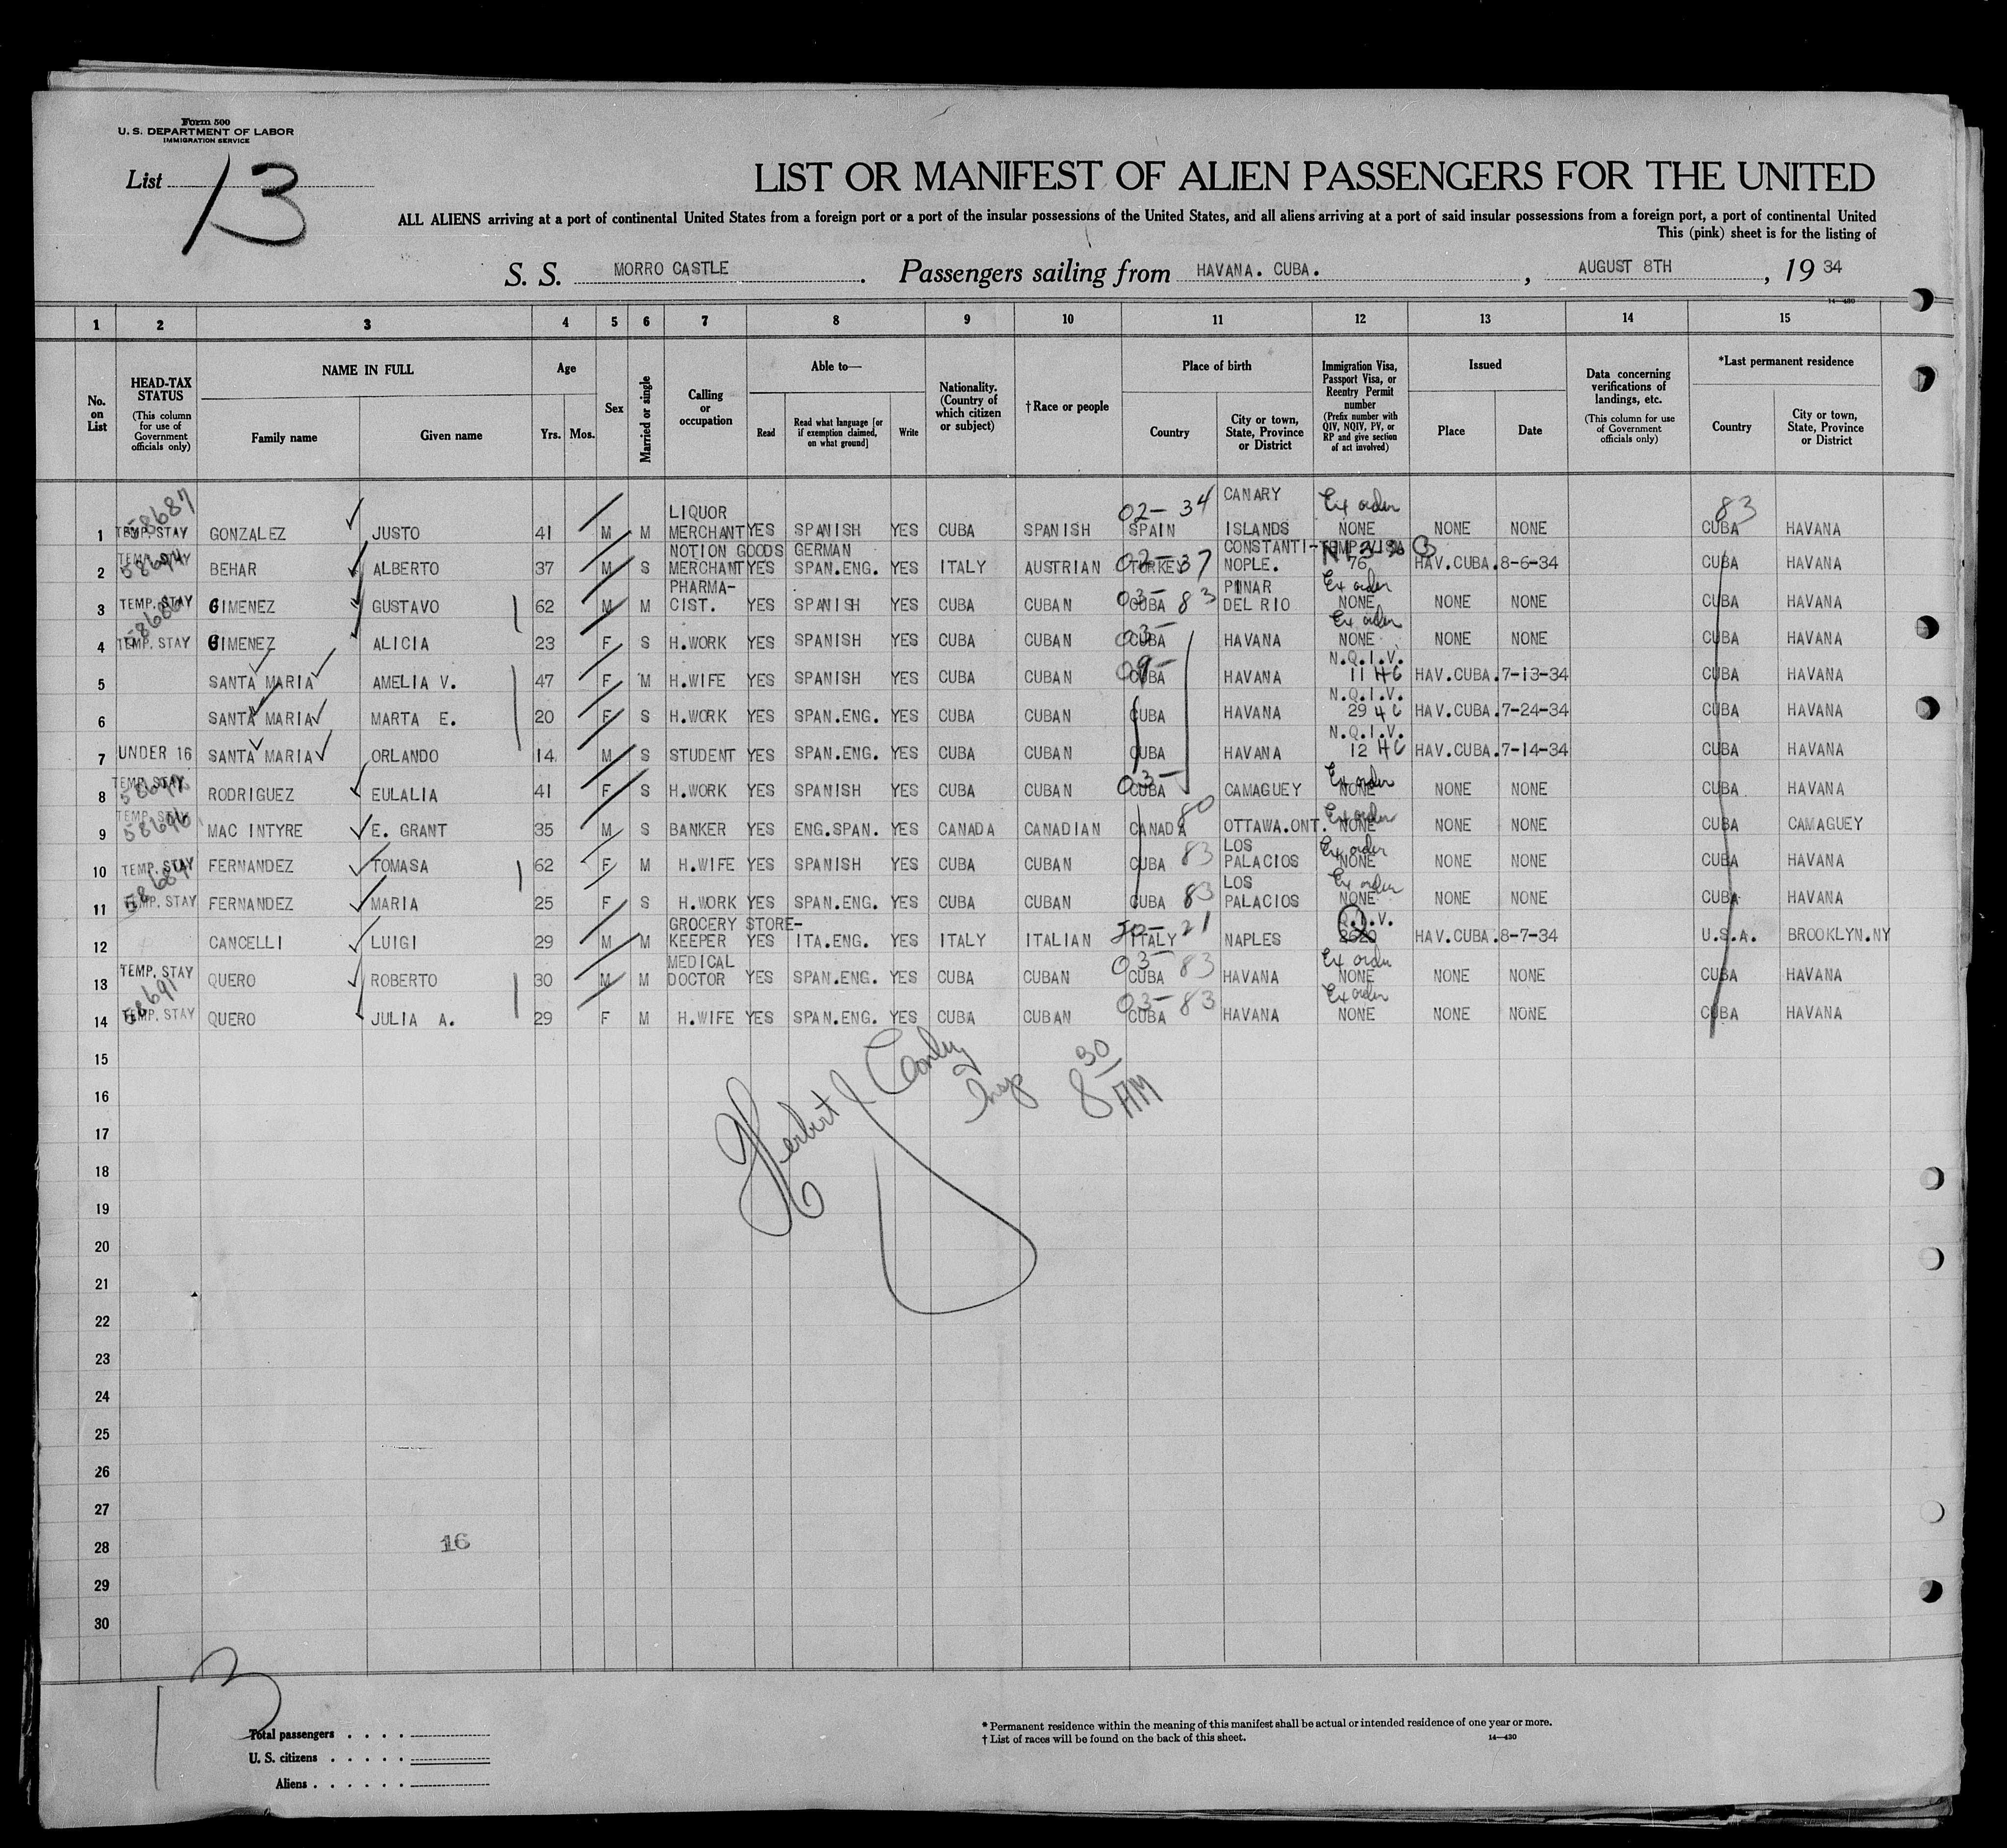 Form 500
U. S. DEPARTMENT OF LABOR
IMMIGRATION SERVICE
List 13
LIST OR MANIFEST OF ALIEN PASSENGERS FOR THE UNITED
ALL ALIENS arriving at a port of continental United States from a foreign port or a port of the insular possessions of the United States, and all aliens arriving at a port of said insular possessions from a foreign port, a port of continental United
This (pink) sheet is for the listing of
S. S. MORRO CASTLE. Passengers sailing from HAVANA. CUBA. , AUGUST 8TH , 19 34
14—430
1 2 3 4 5 6 7 8 9 10 11 12 13 14 15
No. on List
HEAD-TAX STATUS (This column for use of Government officials only)
NAME IN FULL
Family name Given name
Age
Yrs. Mos.
Sex
Married or single
Calling or occupation
Able to—
Read Read what language [or if exemption claimed, on what ground] Write
Nationality. (Country of which citizen or subject)
†Race or people
Place of birth
Country City or town, State, Province or District
Immigration Visa, Passport Visa, or Reentry Permit number (Prefix number with QIV, NQIV, PV, or RP and give section of act involved)
Issued
Place Date
Data concerning verifications of landings, etc. (This column for use of Government officials only)
*Last permanent residence
Country City or town, State, Province or District
58687 LIQUOR 02-34 CANARY Ex order 83
1 TEMP. STAY GONZALEZ JUSTO 41 M M MERCHANT YES SPANISH YES CUBA SPANISH SPAIN ISLANDS NONE NONE NONE CUBA HAVANA
TEMP. STAY NOTION GOODS GERMAN CONSTANTI- TEMP.VISA
2 BEHAR ALBERTO 37 M S MERCHANT YES SPAN.ENG. YES ITALY AUSTRIAN TURKEY 02-37 NOPLE. 76 HAV.CUBA. 8-6-34 CUBA HAVANA
PHARMA- PINAR Ex order
3 TEMP. STAY GIMENEZ GUSTAVO 62 M M CIST. YES SPANISH YES CUBA CUBAN CUBA 03-83 DEL RIO NONE NONE NONE CUBA HAVANA
03- Ex order
4 TEMP. STAY GIMENEZ ALICIA 23 F S H.WORK YES SPANISH YES CUBA CUBAN CUBA HAVANA NONE NONE NONE CUBA HAVANA
N.Q.I.V.
5 SANTA MARIA AMELIA V. 47 F M H.WIFE YES SPANISH YES CUBA CUBAN CUBA HAVANA 11 46 HAV.CUBA. 7-13-34 CUBA HAVANA
N.Q.I.V.
6 SANTA MARIA MARTA E. 20 F S H.WORK YES SPAN.ENG. YES CUBA CUBAN CUBA HAVANA 29 46 HAV.CUBA. 7-24-34 CUBA HAVANA
N.Q.I.V.
7 UNDER 16 SANTA MARIA ORLANDO 14 M S STUDENT YES SPAN.ENG. YES CUBA CUBAN CUBA HAVANA 12 46 HAV.CUBA. 7-14-34 CUBA HAVANA
TEMP. STAY 03- Ex order
8 RODRIGUEZ EULALIA 41 F S H.WORK YES SPANISH YES CUBA CUBAN CUBA CAMAGUEY NONE NONE NONE CUBA HAVANA
TEMP. STAY 80 Ex order
9 58696 MAC INTYRE E. GRANT 35 M S BANKER YES ENG.SPAN. YES CANADA CANADIAN CANADA OTTAWA.ONT. NONE NONE NONE CUBA CAMAGUEY
LOS Ex order
10 TEMP. STAY FERNANDEZ TOMASA 62 F M H.WIFE YES SPANISH YES CUBA CUBAN CUBA 83 PALACIOS NONE NONE NONE CUBA HAVANA
LOS Ex order
11 TEMP. STAY FERNANDEZ MARIA 25 F S H.WORK YES SPAN.ENG. YES CUBA CUBAN CUBA 83 PALACIOS NONE NONE NONE CUBA HAVANA
GROCERY STORE- Q.I.V.
12 CANCELLI LUIGI 29 M M KEEPER YES ITA.ENG. YES ITALY ITALIAN ITALY 21 NAPLES 2620 HAV.CUBA. 8-7-34 U.S.A. BROOKLYN.NY
MEDICAL 03-83 Ex order
13 TEMP. STAY QUERO ROBERTO 30 M M DOCTOR YES SPAN.ENG. YES CUBA CUBAN CUBA HAVANA NONE NONE NONE CUBA HAVANA
58691 03-83 Ex order
14 TEMP. STAY QUERO JULIA A. 29 F M H.WIFE YES SPAN.ENG. YES CUBA CUBAN CUBA HAVANA NONE NONE NONE CUBA HAVANA
15
Herbert J Conley Insp 8 30 AM
16
17
18
19
20
21
22
23
24
25
26
27
28 16
29
30
13
Total passengers
U. S. citizens
Aliens
* Permanent residence within the meaning of this manifest shall be actual or intended residence of one year or more.
† List of races will be found on the back of this sheet.
14—430